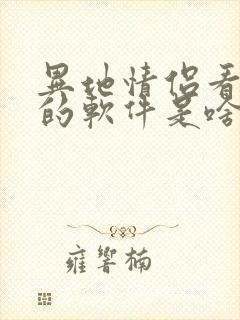 異地情侶看
的軟件是啥
雍響楠